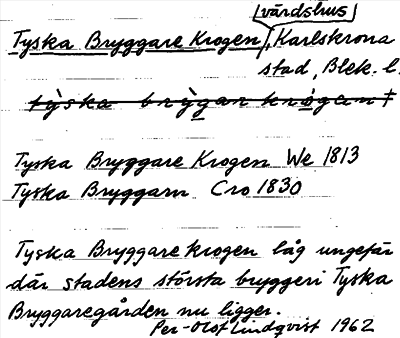 värdshus
Tyska Bryggare Krogen, Karlskrona
stad, Blek. l.
tỳska brỳgan krògan ‡
Tyska Bryggare Krogen We 1813
Tyska Bryggarn Cro 1830
Tyska Bryggare krogen låg ungefär
där stadens största bryggeri Tyska
Bryggaregården nu ligger.
Per-Olof Lindqvist 1962